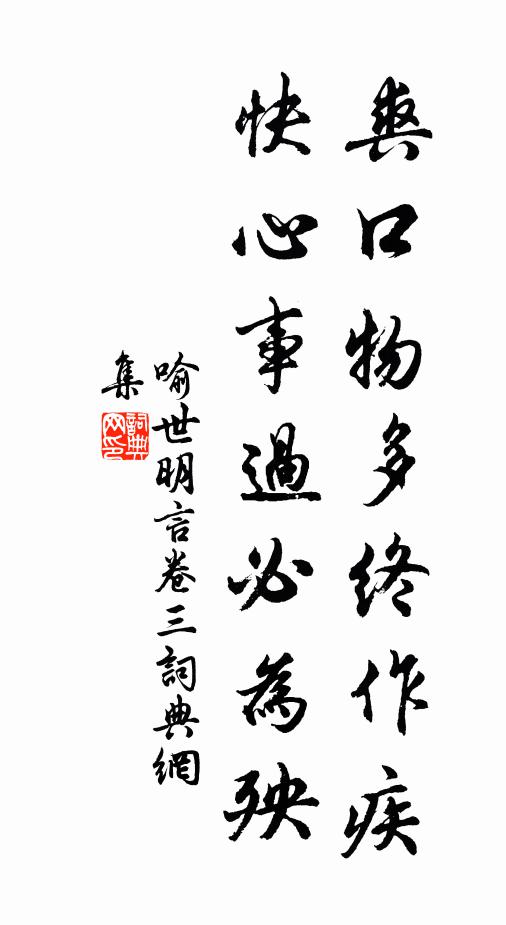 爽口物多終作疾
快心事過必為殃
喻世明言卷三詞典網
集
詞典
网印